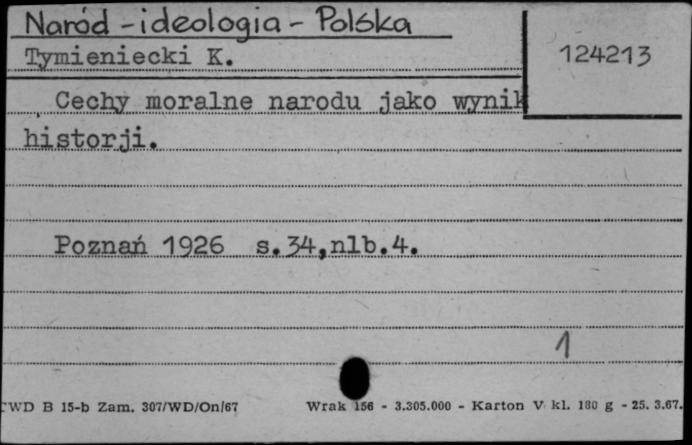 Naród - ideologia - Polska
Tymieniecki K.
124213
Cechy moralne narodu jako wynik
historji.
Poznań 1926 s.34,nlb.4.
1
WD B 15-b Zam. 307/WD/On/67 Wrak 156 - 3.305.000 - Karton V kl. 180 g - 25. 3.67.